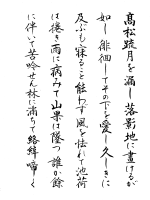 高松疏月を漏し落影地に畫けるが
如し徘徊してその下を愛し久しきに
及ぶも寐ること能わず風を怯れて池荷
は捲き雨に病みて山果は墜つ誰か余
に伴いて苦吟せん林に満ちて絡緯啼く